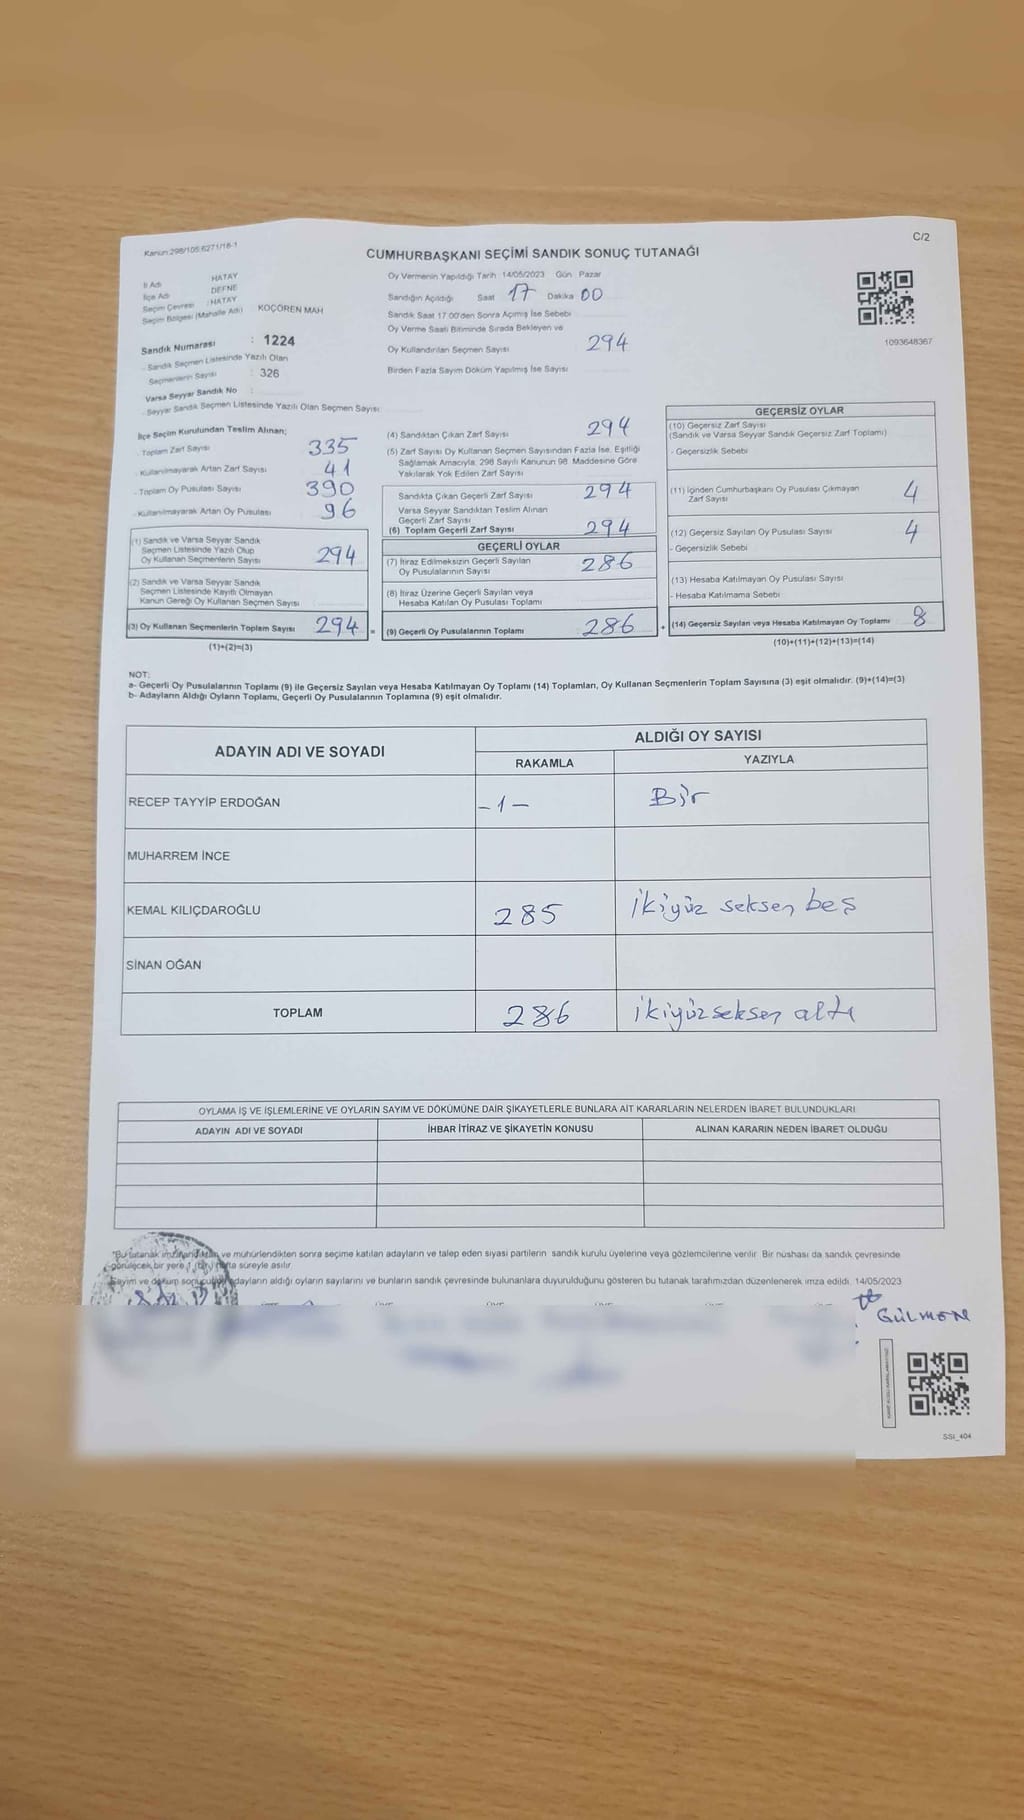 Kanun:298/105 6271/18-1
C/2
CUMHURBAŞKANI SEÇİMİ SANDIK SONUÇ TUTANAĞI
İl Adı HATAY
İlçe Adı DEFNE
Seçim Çevresi : HATAY
Seçim Bölgesi (Mahalle Adı) KOÇÖREN MAH
Sandık Numarası : 1224
- Sandık Seçmen Listesinde Yazılı Olan
Seçmenlerin Sayısı : 326
Varsa Seyyar Sandık No :
- Seyyar Sandık Seçmen Listesinde Yazılı Olan Seçmen Sayısı
Oy Vermenin Yapıldığı Tarih 14/05/2023 Gün Pazar
Sandığın Açıldığı Saat 17 Dakika 00
Sandık Saat 17 00'den Sonra Açımış İse Sebebi
Oy Verme Saati Bitiminde Sırada Bekleyen ve
Oy Kullandırılan Seçmen Sayısı 294
Birden Fazla Sayım Döküm Yapılmış İse Sayısı
1093648367
İlçe Seçim Kurulundan Teslim Alınan;
- Toplam Zarf Sayısı 335
- Kullanılmayarak Artan Zarf Sayısı 41
- Toplam Oy Pusulası Sayısı 390
- Kullanılmayarak Artan Oy Pusulası 96
(1) Sandık ve Varsa Seyyar Sandık
Seçmen Listesinde Yazılı Olup
Oy Kullanan Seçmenlerin Sayısı 294
(2) Sandık ve Varsa Seyyar Sandık
Seçmen Listesinde Kayıtlı Olmayan
Kanun Gereği Oy Kullanan Seçmen Sayısı
(3) Oy Kullanan Seçmenlerin Toplam Sayısı 294 =
(1)+(2)=(3)
(4) Sandıktan Çıkan Zarf Sayısı 294
(5) Zarf Sayısı Oy Kullanan Seçmen Sayısından Fazla İse, Eşitliği
Sağlamak Amacıyla, 298 Sayılı Kanunun 98. Maddesine Göre
Yakılarak Yok Edilen Zarf Sayısı
Sandıkta Çıkan Geçerli Zarf Sayısı 294
Varsa Seyyar Sandıktan Teslim Alınan
Geçerli Zarf Sayısı
(6) Toplam Geçerli Zarf Sayısı 294
GEÇERLİ OYLAR
(7) İtiraz Edilmeksizin Geçerli Sayılan
Oy Pusulalarının Sayısı 286
(8) İtiraz Üzerine Geçerli Sayılan veya
Hesaba Katılan Oy Pusulası Toplamı
(9) Geçerli Oy Pusulalarının Toplamı 286 +
GEÇERSİZ OYLAR
(10) Geçersiz Zarf Sayısı
(Sandık ve Varsa Seyyar Sandık Geçersiz Zarf Toplamı)
- Geçersizlik Sebebi
(11) İçinden Cumhurbaşkanı Oy Pusulası Çıkmayan
Zarf Sayısı 4
(12) Geçersiz Sayılan Oy Pusulası Sayısı 4
- Geçersizlik Sebebi
(13) Hesaba Katılmayan Oy Pusulası Sayısı
- Hesaba Katılmama Sebebi
(14) Geçersiz Sayılan veya Hesaba Katılmayan Oy Toplamı 8
(10)+(11)+(12)+(13)=(14)
NOT:
a- Geçerli Oy Pusulalarının Toplamı (9) ile Geçersiz Sayılan veya Hesaba Katılmayan Oy Toplamı (14) Toplamları, Oy Kullanan Seçmenlerin Toplam Sayısına (3) eşit olmalıdır. (9)+(14)=(3)
b- Adayların Aldığı Oyların Toplamı, Geçerli Oy Pusulalarının Toplamına (9) eşit olmalıdır.
ADAYIN ADI VE SOYADI
ALDIĞI OY SAYISI
RAKAMLA YAZIYLA
RECEP TAYYİP ERDOĞAN -1- Bir
MUHARREM İNCE
KEMAL KILIÇDAROĞLU 285 ikiyüz seksen beş
SİNAN OĞAN
TOPLAM 286 ikiyüzseksen altı
OYLAMA İŞ VE İŞLEMLERİNE VE OYLARIN SAYIM VE DÖKÜMÜNE DAİR ŞİKAYETLERLE BUNLARA AİT KARARLARIN NELERDEN İBARET BULUNDUKLARI
ADAYIN ADI VE SOYADI İHBAR İTİRAZ VE ŞİKAYETİN KONUSU ALINAN KARARIN NEDEN İBARET OLDUĞU
"Bu tutanak imzalandıktan ve mühürlendikten sonra seçime katılan adayların ve talep eden siyasi partilerin sandık kurulu üyelerine veya gözlemcilerine verilir. Bir nüshası da sandık çevresinde
görülecek bir yere 1 (bir) hafta süreyle asılır.
Sayım ve döküm sonucunda adayların aldığı oyların sayılarını ve bunların sandık çevresinde bulunanlara duyurulduğunu gösteren bu tutanak tarafımızdan düzenlenerek imza edildi. 14/05/2023
GÜLMEN
SSI_404